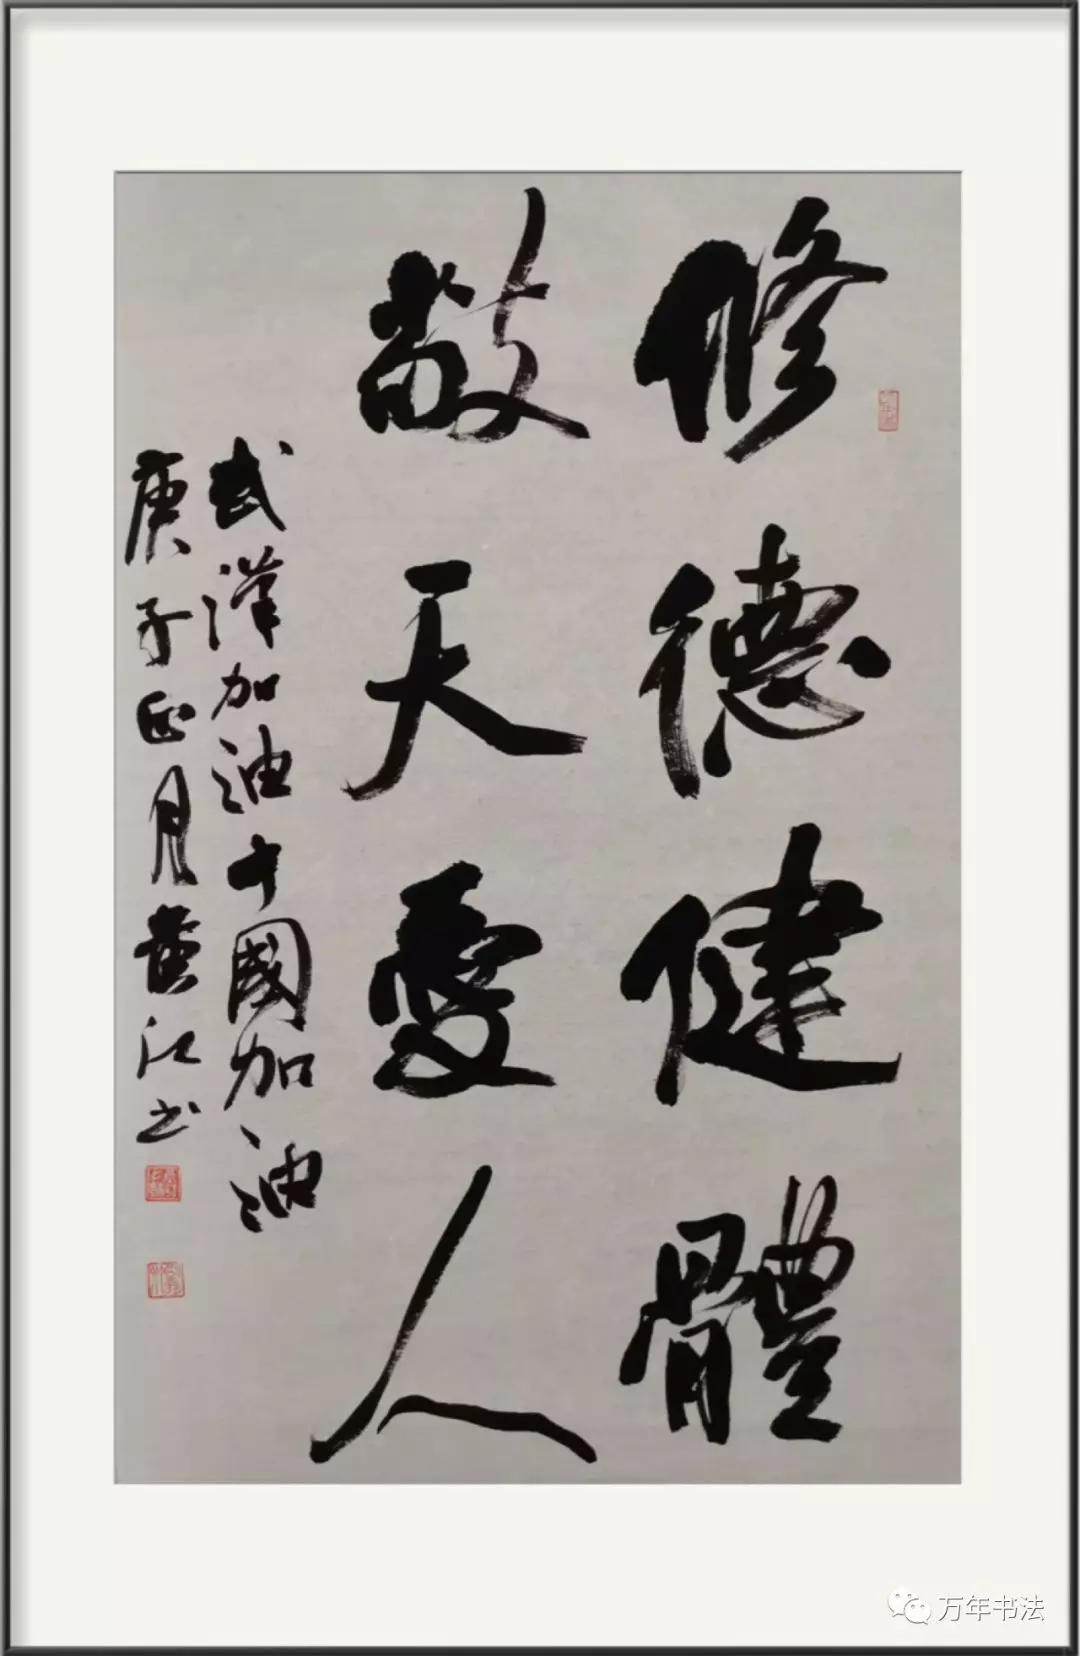 修德健體
敬天愛人
武漢加油中國加油
庚子正月黄江书
万年书法